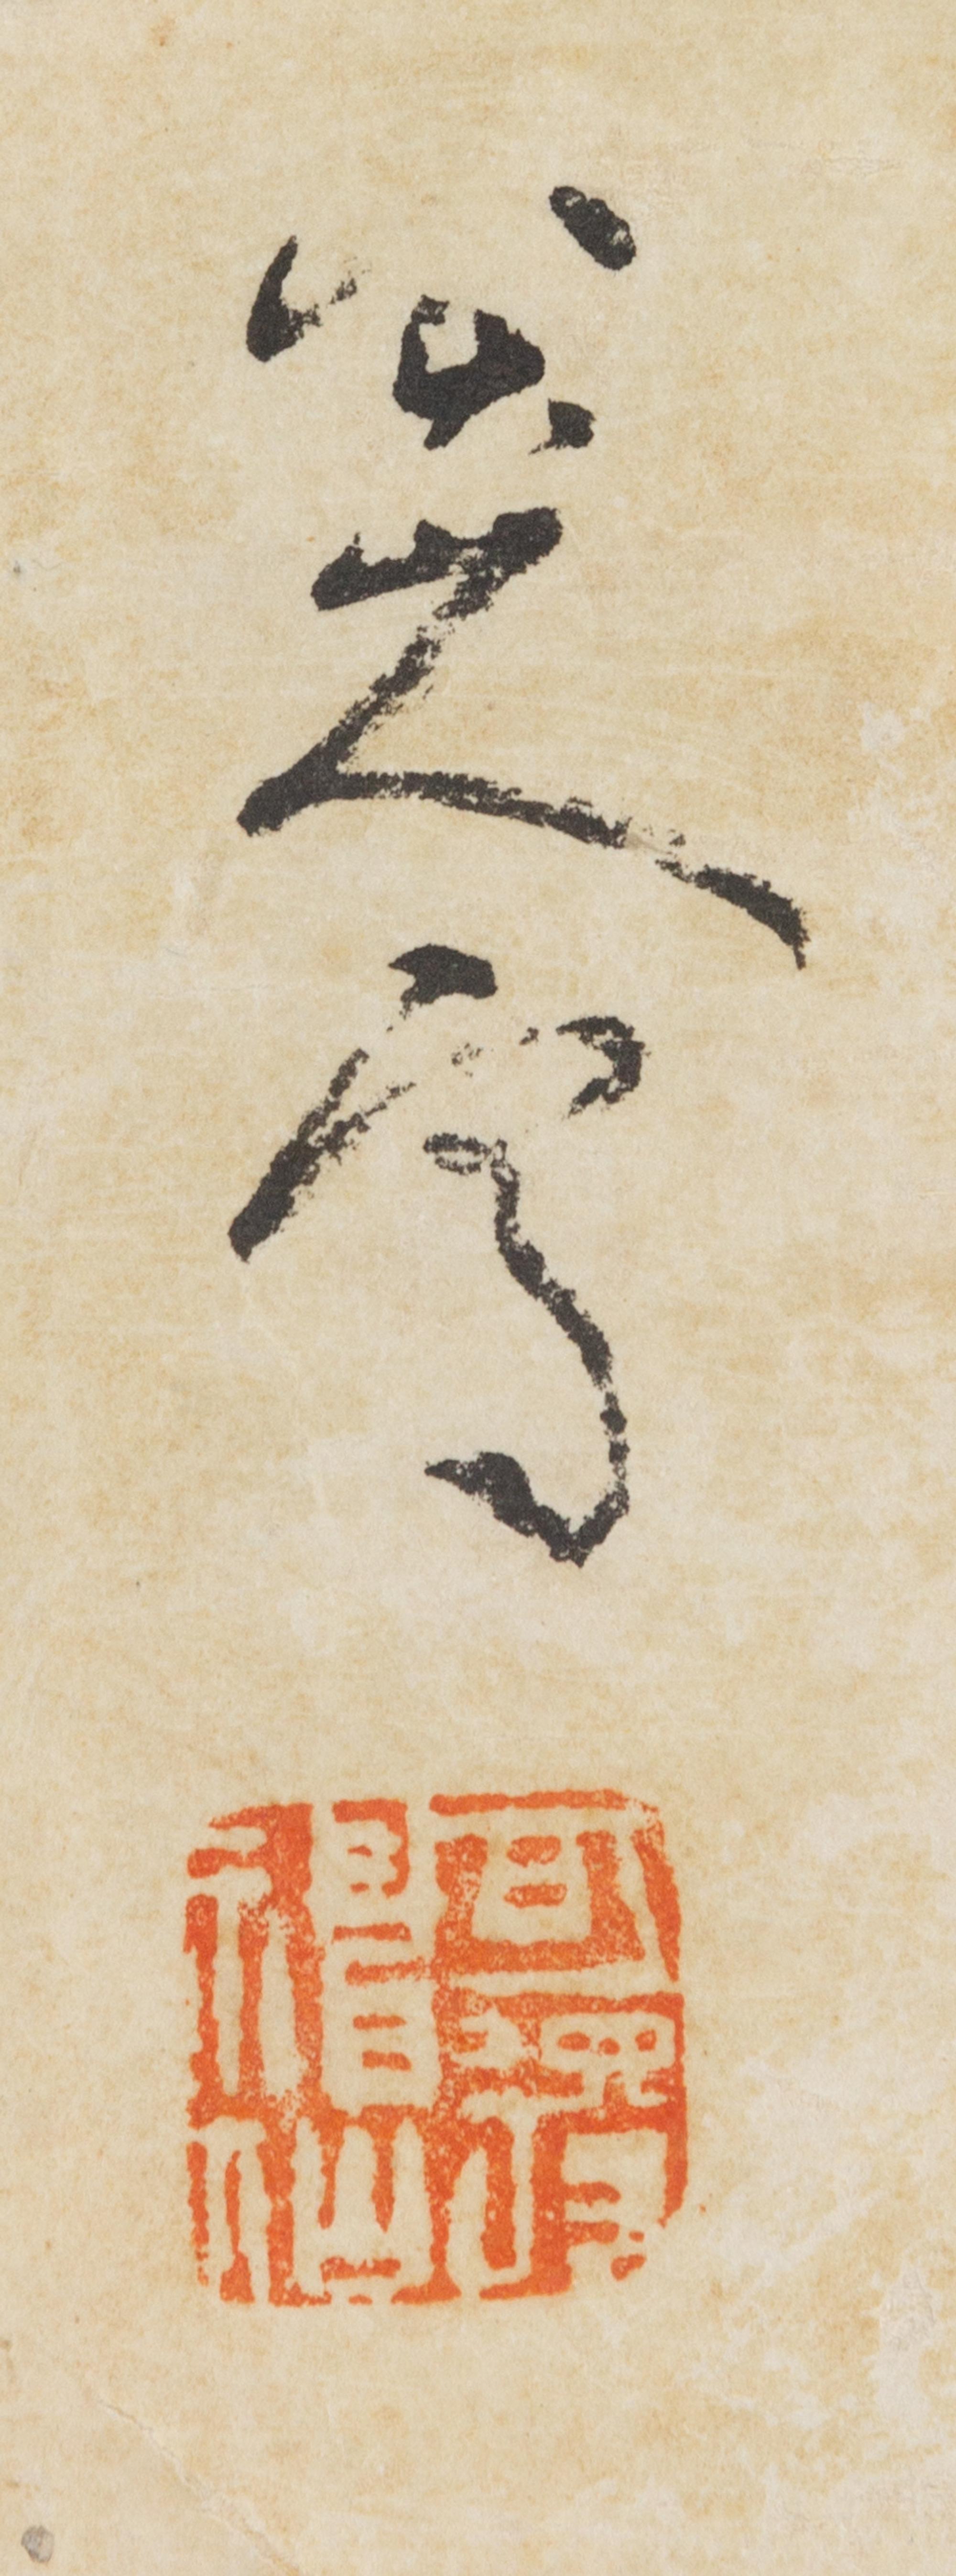 八大山人寫
可得神仙